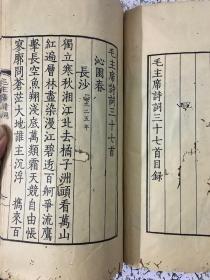 毛主席詩詞三十七首目録
毛主席詩詞三十七首
沁園春
長沙 一九二五年
獨立寒秋湘江北去橘子洲頭看萬山
紅遍層林盡染漫江碧透百舸爭流鷹
擊長空魚翔淺底萬類霜天競自由悵
寥廓問蒼茫大地誰主沉浮 擕來百